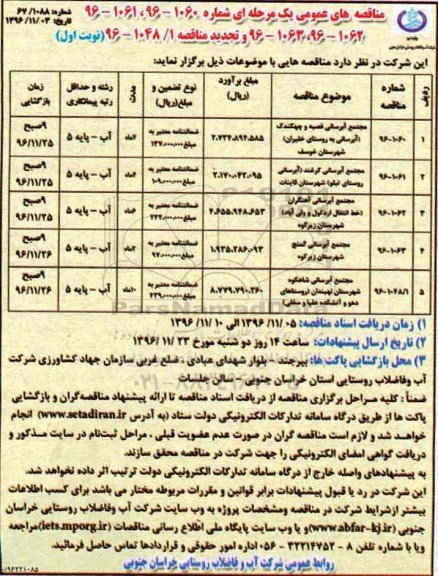 مناقصه های عمومی یک مرحله ای شماره ۱۰۶۰-۹۶، ۱۰۶۱-۹۶
۱۰۶۲-۹۶، ۱۰۶۳-۹۶ و تجدید مناقصه ۱۰۴۸/۱-۹۶ (نوبت اول)
شماره: ۶۷/۱۰۸۸
تاریخ: ۱۳۹۶/۱۱/۰۳
این شرکت در نظر دارد مناقصه هایی با موضوعات ذیل برگزار نماید:
ردیف شماره مناقصه موضوع مناقصه مبلغ برآورد (ریال) نوع تضمین و مبلغ (ریال) مدت رشته و حداقل رتبه پیمانکاری زمان بازگشایی
۱ ۹۶-۱۰۶۰ مجتمع آبرسانی فصیه و چهکندک (آبرسانی به روستای خلیران) شهرستان خوسف ۲،۷۳۴،۸۹۴،۵۸۵ ضمانتنامه معتبر به مبلغ ۱۳۷،۰۰۰،۰۰۰ آب - پایه ۵ ۹صبح ۹۶/۱۱/۲۵
۲ ۹۶-۱۰۶۱ مجتمع آبرسانی کرغند (آبرسانی روستای تیلو) شهرستان قاینات ۲،۱۷۰،۰۴۲،۰۹۵ ضمانتنامه معتبر به مبلغ ۱۰۹،۰۰۰،۰۰۰ آب - پایه ۵ ۹صبح ۹۶/۱۱/۲۵
۳ ۹۶-۱۰۶۲ مجتمع آبرسانی آهنگران (خط انتقال اردکول و ولی آباد) شهرستان زیرکوه ۴،۶۵۵،۹۴۸،۶۵۳ ضمانتنامه معتبر به مبلغ ۲۳۳،۰۰۰،۰۰۰ آب - پایه ۵ ۹صبح ۹۶/۱۱/۲۵
۴ ۹۶-۱۰۶۳ مجتمع آبرسانی گمنج شهرستان زیرکوه ۱،۹۳۵،۲۸۶،۰۹۳ ضمانتنامه معتبر به مبلغ ۹۷،۰۰۰،۰۰۰ آب - پایه ۵ ۹صبح ۹۶/۱۱/۲۶
۵ ۹۶-۱۰۴۸/۱ مجتمع آبرسانی شاهکوه شهرستان نهبندان (روستاهای دهو و آتشکده علیا و سفلی) ۸،۷۷۹،۷۹۰،۲۶۰ ضمانتنامه معتبر به مبلغ ۴۳۹،۰۰۰،۰۰۰ آب - پایه ۵ ۹صبح ۹۶/۱۱/۲۶
۱) زمان دریافت اسناد مناقصه: ۱۳۹۶/۱۱/۰۵ الی ۱۳۹۶/۱۱/۱۰
۲) تاریخ ارسال پیشنهادات: ساعت ۱۴ روز دو شنبه مورخ ۱۳۹۶/۱۱/۲۳
۳) محل بازگشایی پاکت ها: بیرجند - بلوار شهدای عبادی - ضلع غربی سازمان جهاد کشاورزی شرکت
آب وفاضلاب روستایی استان خراسان جنوبی - سالن جلسات
ضمناً : کلیه مراحل برگزاری مناقصه از دریافت اسناد مناقصه تا ارائه پیشنهاد مناقصه گران و بازگشایی
پاکت ها از طریق درگاه سامانه تدارکات الکترونیکی دولت ستاد (به آدرس www.setadiran.ir) انجام
خواهد شد و لازم است مناقصه گران در صورت عدم عضویت قبلی ، مراحل ثبت‌نام در سایت مذکور و
دریافت گواهی امضای الکترونیکی را جهت شرکت در مناقصه محقق سازند.
به پیشنهادهای واصله خارج از درگاه سامانه تدارکات الکترونیکی دولت ترتیب اثر داده نخواهد شد.
این شرکت در رد یا قبول پیشنهادات برابر قوانین و مقررات مربوطه مختار می باشد برای کسب اطلاعات
بیشتر ازشرایط شرکت در مناقصه ومشخصات پروژه به وب سایت شرکت آب وفاضلاب روستایی خراسان
جنوبی (www.abfar-kj.ir) و یا وب سایت پایگاه ملی اطلاع رسانی مناقصات (iets.mporg.ir) مراجعه
ویا با شماره تلفن ۸ - ۳۲۲۱۴۷۵۲ - ۰۵۶ اداره امور حقوقی و قراردادها تماس حاصل فرمائید.
روابط عمومی شرکت آب و فاضلاب روستایی خراسان جنوبی
۹۶۲۲۱۰۸۵/